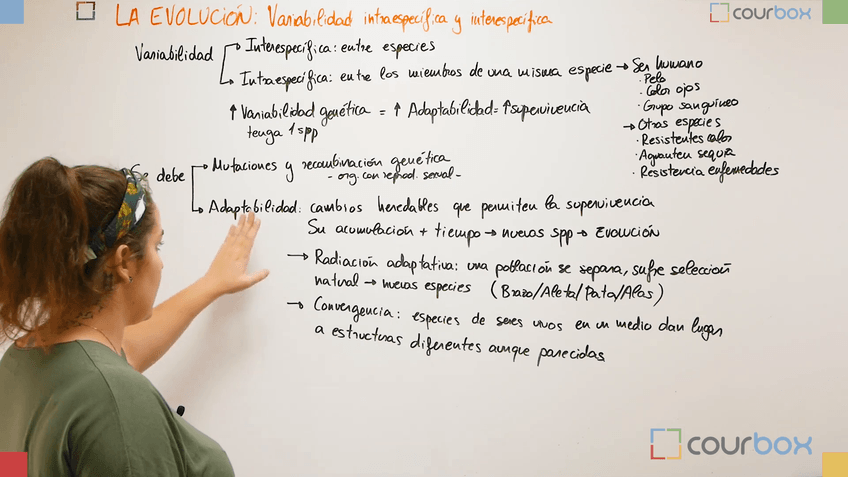 LA EVOLUCIÓN: Variabilidad intraespecífica y interespecífica
courbox
Variabilidad
Interespecífica: entre especies
Intraespecífica: entre los miembros de una misma especie → Ser humano
· Pelo
· Color ojos
· Grupo sanguíneo
→ Otras especies
· Resistentes calor
· Aguanten sequía
· Resistencia enfermedades
↑ Variabilidad genética = ↑ Adaptabilidad = ↑ supervivencia
tenga 1 spp
Se debe
Mutaciones y recombinación genética
- org. con reprod. sexual -
Adaptabilidad: cambios heredables que permiten la supervivencia
Su acumulación + tiempo → nuevas spp → EVOLUCIÓN
→ Radiación adaptativa: una población se separa, sufre selección
natural → nuevas especies (Brazo/Aleta/Pata/Alas)
→ Convergencia: especies de seres vivos en un medio dan lugar
a estructuras diferentes aunque parecidas
courbox